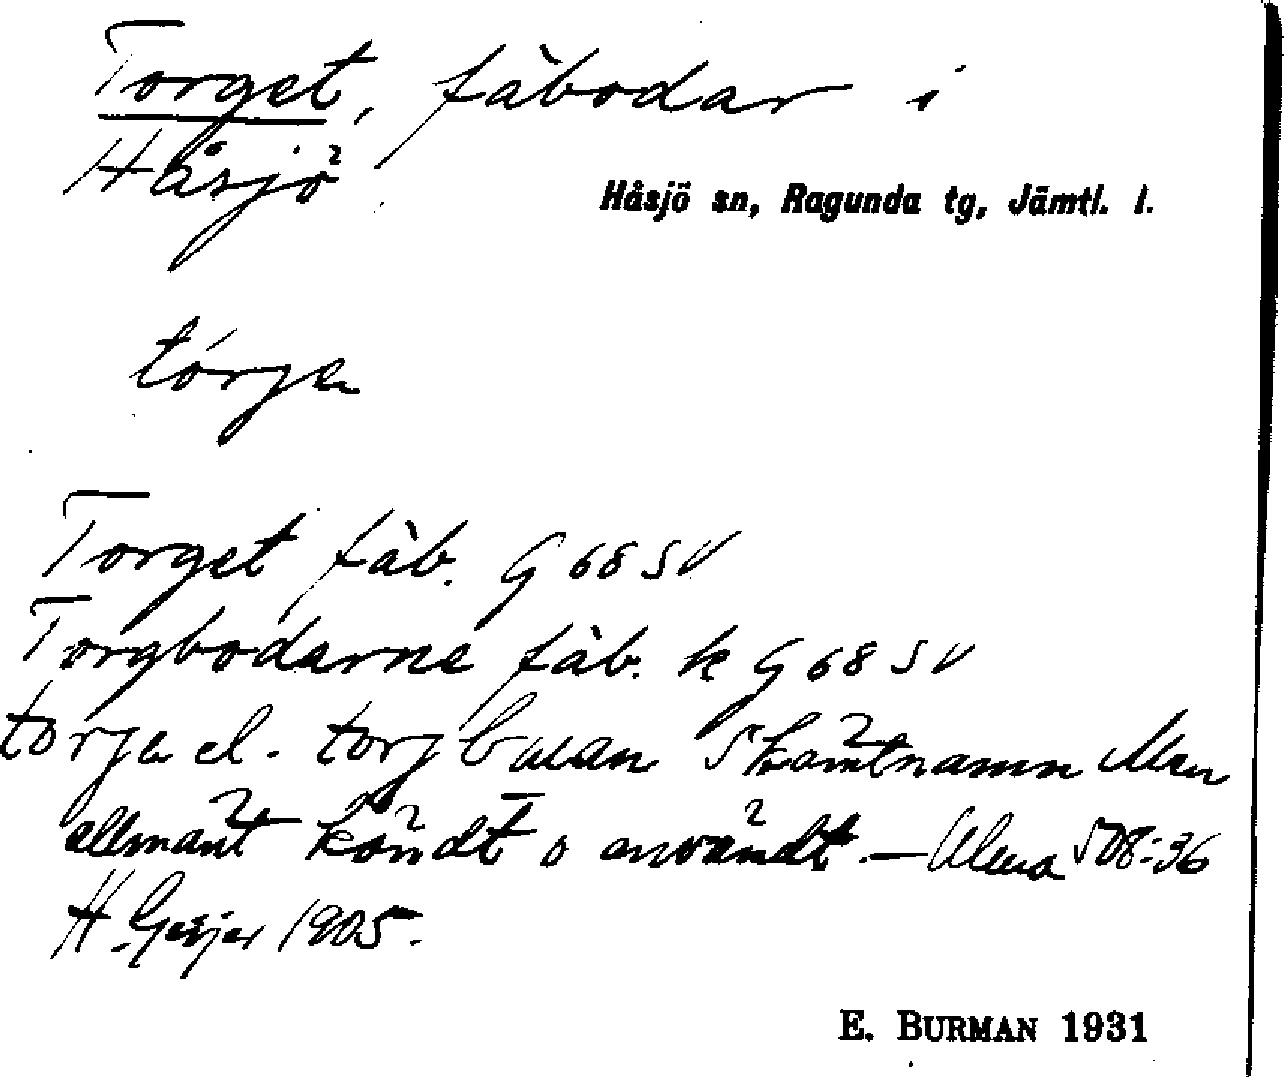 Torget, fäbodar i
Håsjö
Håsjö sn, Ragunda tg, Jämtl. l.
tórja
Torget fäb. G 68 SV
Torgbodarne fäb. k G 68 SV
torja el. torjbuan Skämtnamn Men
allmänt kändt o användt. — ULma 508:36
H. Geijer 1905.
E. BURMAN 1931